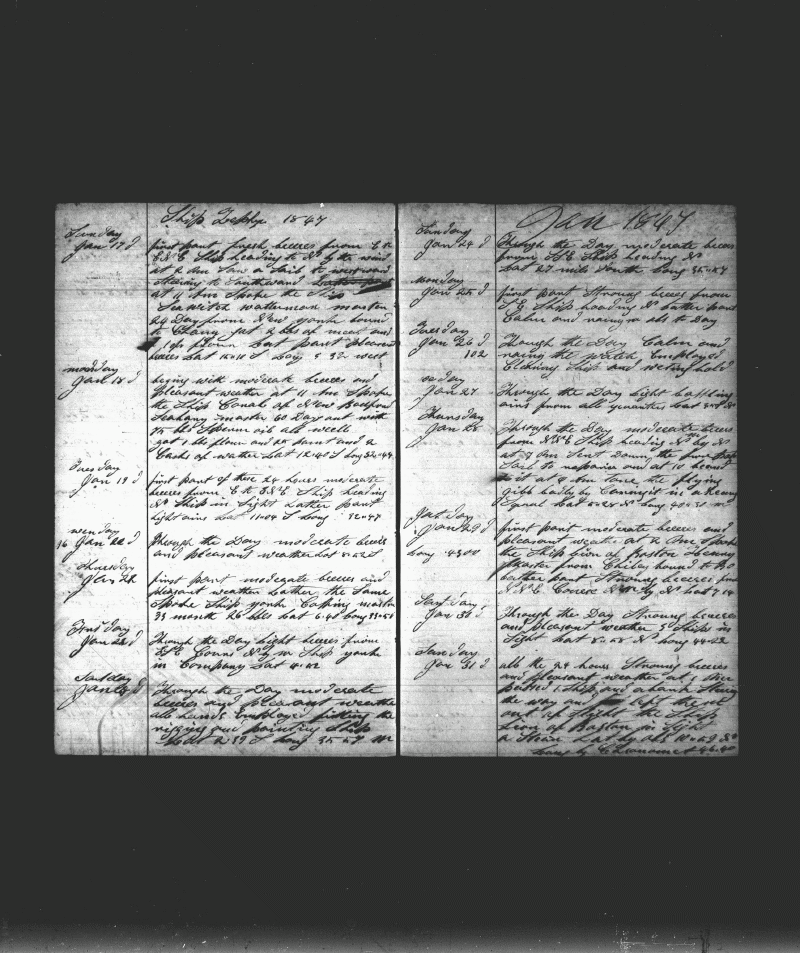 Ship Zephyr 1847
Sunday
Jan 17 d
first part fresh breeses from E to
E S E Ship heading to N by the wind
at 2 Am Saw a Sail to westward
Stearing to Southward
at 11 Am Spoke the Ship
Seawitch waterman master
24 Day from New york bound
to China got 2 lbs of meat and
flour Lat part pleasant
breeses Lat Long 32 west
monday
Jan 18 d
begins with moderate breeses and
pleasant weather at 11 Am Spoke
the Ship of New Bedford
master 60 Day out with
75 bls Sperm oil all well
got 1 bls flour and paint and 2
Casks of water Lat 12-40 S Long 32-44
Tuesday
Jan 19 d
first part of these 24 hours moderate
breeses from E to E S E Ship heading
N Ship in Sight Latter part
light airs Lat 11-04 S Long 32-47
wenday
16 Jan 20 d
Through the Day moderate breeses
and pleasant weather Lat 8-52 S
Thursday
Jan 21
first part moderate breeses and
pleasant weather Latter the Same
Spoke Ship york master
33 month bls Lat 6-41 Long 33-51
Friday
Jan 22 d
Through the Day Light breeses from
S E Course N by w Ship york
in Company Lat 4-42
Satday
Jan 23 d
Through the Day moderate
breeses and pleasant weather
all hands Employed fitting the
riging and painting Ship
Lat 2 39 S Long 35-57 W
Jan 1847
Sunday
Jan 24 d
Through the Day moderate breeses
from S E Ship heading N
Lat 27 mile South Long 35-57
monday
Jan 25 d
first part Strong breeses from
S E Ship heading N latter part
Calm and rainy
Tuesday
Jan 26 d
102
Through the Day Calm and
rainy the watch Employed
Ship and
weday
Jan 27
Through the Day Light baffling
airs from all Lat
Thursday
Jan 28
Through the Day moderate breeses
from N N E Ship heading N w by N
at 7 Am Sent Down the fore top
Sail to repair and at 10
it at 4 Am tore the flying
gibb badly by in a heavy
Squal Lat Long 40-31 W
fri day
Jan 29 d
Long 43 00
first part moderate breeses and
pleasant weather at 2 Am Spoke
the Ship of Boston
master from Chiley bound to
Latter part Strong breeses from
N N E Course N w by N Lat
Satday
Jan 30 d
Through the Day Strong breeses
and pleasant weather 5 Ships in
Sight Lat N Long 44-22
Sunday
Jan 31 d
all the 24 hours Strong breeses
and pleasant weather at 1 Am
passed 1 Ship and a bark
the way and left the
out of Sight the Ship
of Boston in Sight
a Stern Lat by Obs 10-69 N
Long by Cronometer 46-40